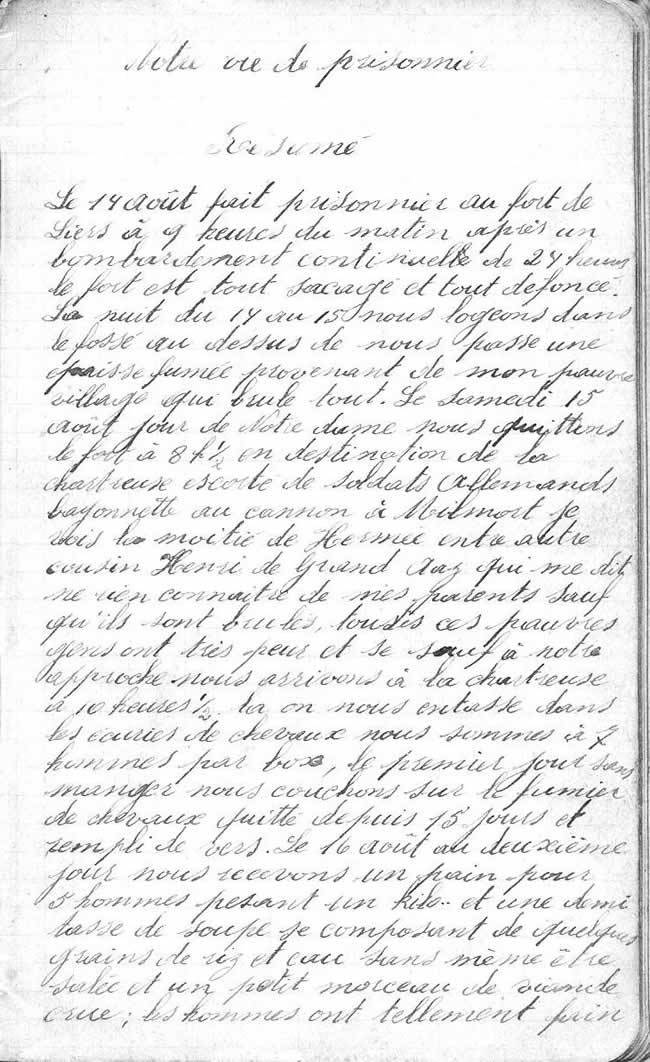 Notre vie de prisonnier
Résumé
Le 14 août fait prisonnier au fort de
Liers à 9 heures du matin après un
bombardement continuelle de 24 heures
le fort est tout sacagé et tout defoncé.
La nuit du 14 au 15 nous logeons dans
le fossé au dessus de nous passe une
epaisse fumée provenant de mon pauvre
village qui brule tout. Le samedi 15
août jour de Notre dame nous quittons
le fort à 8 h ½ en destination de la
chartreuse escorté de soldats Allemands
bayonnette au cannon à Milmort je
vois la moitié de Hermée entre autre
cousin Henri de Grand Aaz qui me dit
ne rien connaitre de mes parents sauf
qu'ils sont brulés, tous ces pauvres
gens ont très peur et se sauf à notre
approche nous arrivons à la chartreuse
à 10 heures ½ la on nous entasse dans
les écuries de chevaux nous sommes à 7
hommes par box, le premier jour sans
manger nous couchons sur le fumier
de chevaux quitté depuis 15 jours et
rempli de vers. Le 16 août au deuxième
jour nous recevons un pain pour
5 hommes pesant un kilo.. et une demi
tasse de soupe se composant de quelques
grains de riz et eau sans même être
salée et un petit morceau de viande
crue; les hommes ont tellement faim